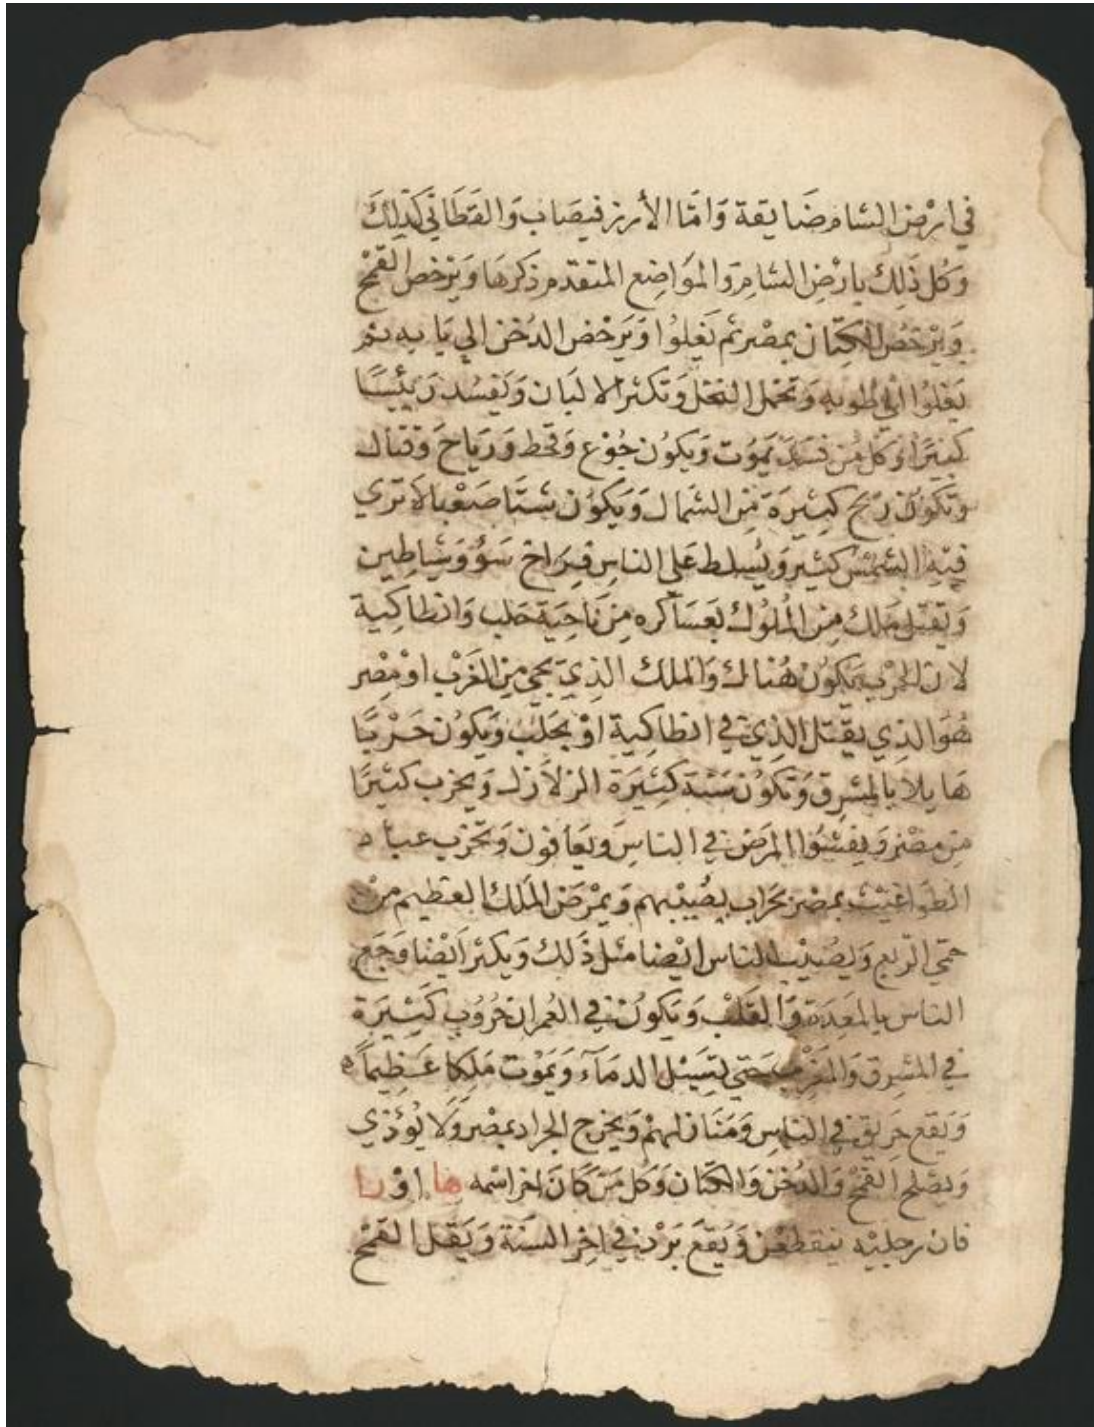 في ارْض الشام ضَايقة وَامَّا الأرز فيصَاب وَالقطَانِي كَذلِكَ
وَكُل ذَلِكَ بارْضِ الشامِ وَالموَاضِع المتقدم ذكرهَا وَيَرْخص القمْح
وَيَرْخصُ الكِتان بمصْر ثم تَغلوُا وَيَرْخص الدُخن الي بَابه ثم
يَغلوُا الي طُوبه وَتحمل النخل وَتكثر الالبَان وَيَفسُد رَئيسًا
كبيَرًا وَكل من فسَدَ يَموُت وَيكوُن جُوْع وَقحط وَرَياح وَقتال
وَتكوُن رِيح كِثيرَة مِن الشمَال وَيَكوُن شتَا صَعْبا لا تري
فيْهِ الشمْسْ كثير وَيُسلط عَلي الناسِ فِرَاخ سَوُ وَشيَاطِين
وَيقتل مَلك مِن المُلوُك بعَسَاكره مِن نَاحيَة حَلب وَانطاكية
لان الحَرْب يَكوُن هُنَاك وَالملك الذِي يَجي مِن الغَرْب اوْ مِصْر
هُوَ الذِي يقتل الذِي في انطاكية اوْ بحَلبْ وَيكوُن حَرْبًا
هَايلا بالمشرِق وَتكوُن سَنة كَثيَرَة الزلاَزل وَيخرب كثيرًا
مِن مصْر وَيفشوُا المرَض في الناسِ وَيعَافون وَتخرب عبا د
الطوَاغيْت بمصْر بخرَاب يصُيْبهم وَيمْرَض الملك العظيم من
حمّي الرّبع وَيصُيْب الناس ايْضا مثل ذَلك وَيكثر ايَضْا وَجَع
الناس بالمعِدَة وَالقلبْ وَيكوُن في العُمران حُرُوب كَثِيْرَة
في المشرِق وَالمغرِب حَتي تسِيْل الدمَآء وَيَموْت مَلِكا عَظِيماً ه
وَيقع حَرِيق في الناسِ وَمَنازلهمْ وَيخرج الجراد بمصْر وَلا يُؤذي
وَيصْلح القمْح وَالدُخن وَالكتان وَكل مَن كَانَ اخر اسْمه ها اوْ را
فان رجليْه ينقطعْن وَيقعَ بَرْد في اخِر السَنَة وَيَقل القمْح